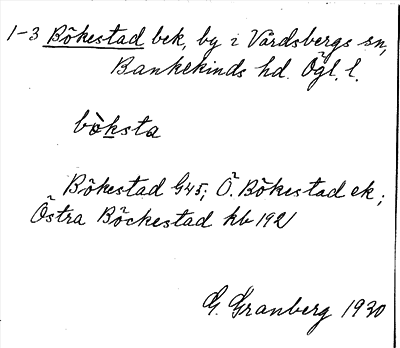 1-3 Bökestad bek, by i Vårdsbergs sn,
Bankekinds hd. Ögl. l.
bö̀ksta
Bökestad G45; Ö. Bökestad ek;
Östra Böckestad kb 1921
G. Granberg 1930